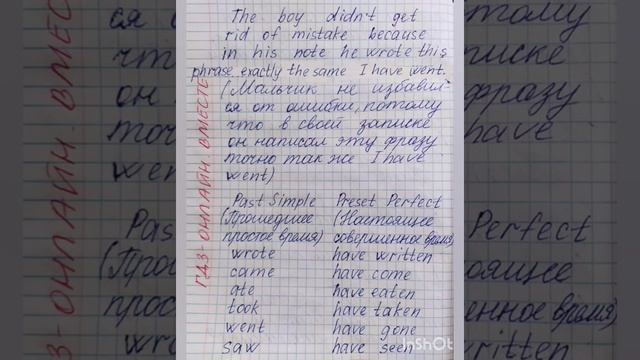 The boy didn't get
rid of mistake because
in his note he wrote this
phrase exactly the same I have went.
(Мальчик не избавил-
ся от ошибки, потому
что в своей записке
он написал эту фразу
точно так же I have
went)
Past Simple Preset Perfect
(Прошедшее (Настоящее
простое время) совершенное время)
wrote have written
came have come
ate have eaten
took have taken
went have gone
saw have seen
ГДЗ-ОНЛАЙН. ВМЕСТЕ
InShOt